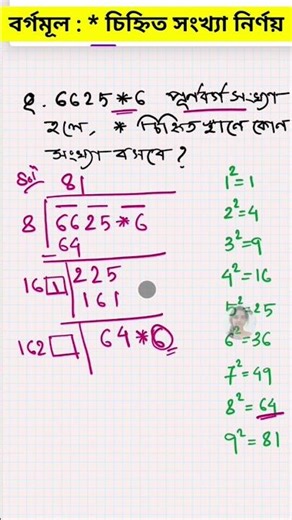 বর্গমূল : * চিহ্নিত সংখ্যা নির্ণয়
Q. 6625*6 পূর্ণবর্গ সংখ্যা
হলে, * চিহ্নিত স্থানে কোন
সংখ্যা বসবে ?
Sol^n
81
8 6625*6
64
161 225
161
162 64*6
1²=1
2²=4
3²=9
4²=16
5²=25
6²=36
7²=49
8²=64
9²=81